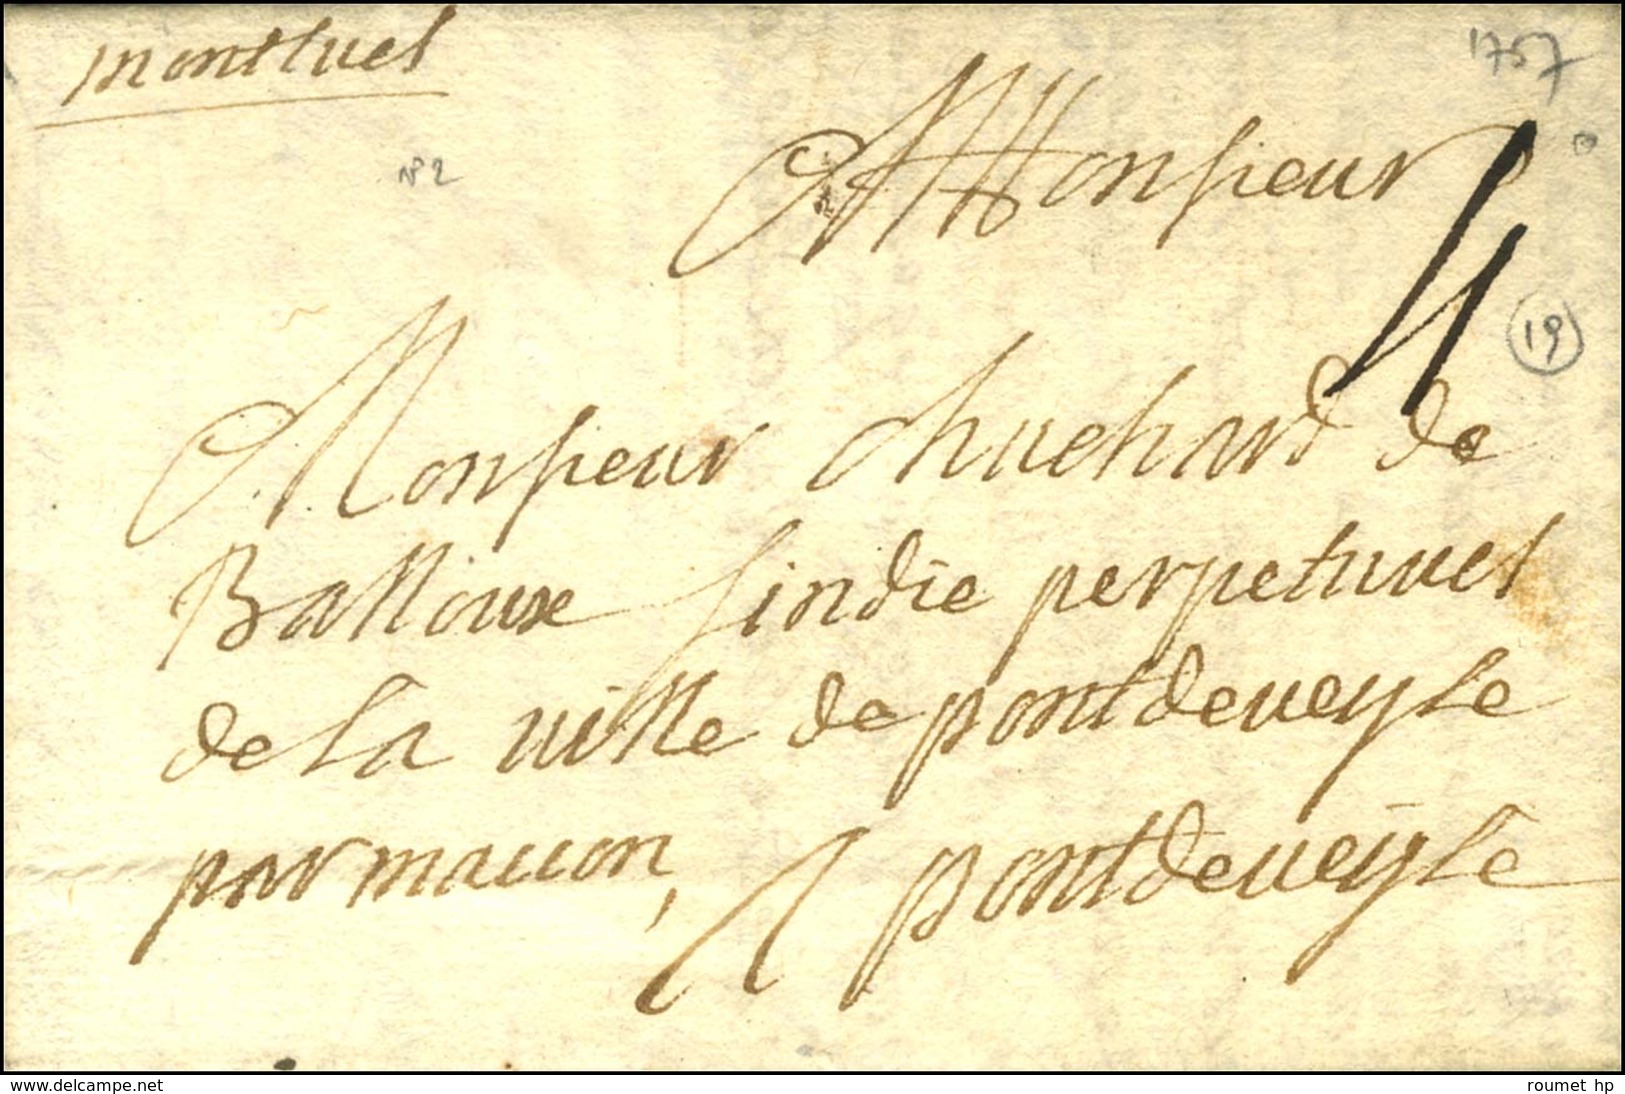 montluel
1757
n° 2
A Monsieur
4
19
Monsieur Chuehard de
Balloux sindic perpetuuel
de la ville de pontdeueyle
par macon, A pontdeueyle
www.delcampe.net
roumet hp